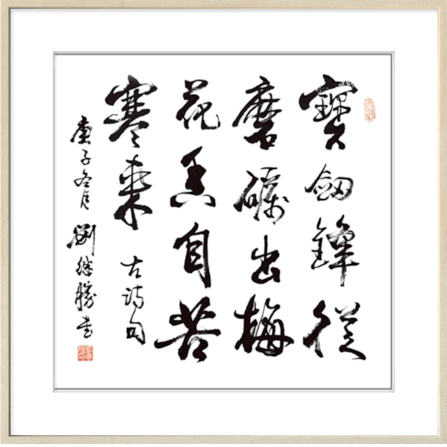 寶劔鋒從
磨礪出梅
花香自苦
寒来
古詩句
庚子冬月劉继勝書